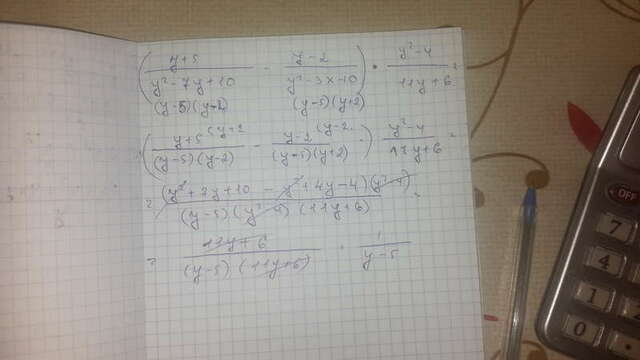 ( y+5 / y²-7y+10 - y-2 / y²-3x-10 ) · y²-4 / 11y+6 =
(y-5)(y-2) (y-5)(y+2)
( y+5 (y+2 / (y-5)(y-2) - y-2 (y-2 / (y-5)(y+2) ) y²-4 / 11y+6 =
= (y²+7y+10 - y²+4y-4)(y²-4) / (y-5)(y²-4)(11y+6) =
= 11y+6 / (y-5)(11y+6) · 1 / y-5
OFF
7
4
1
0